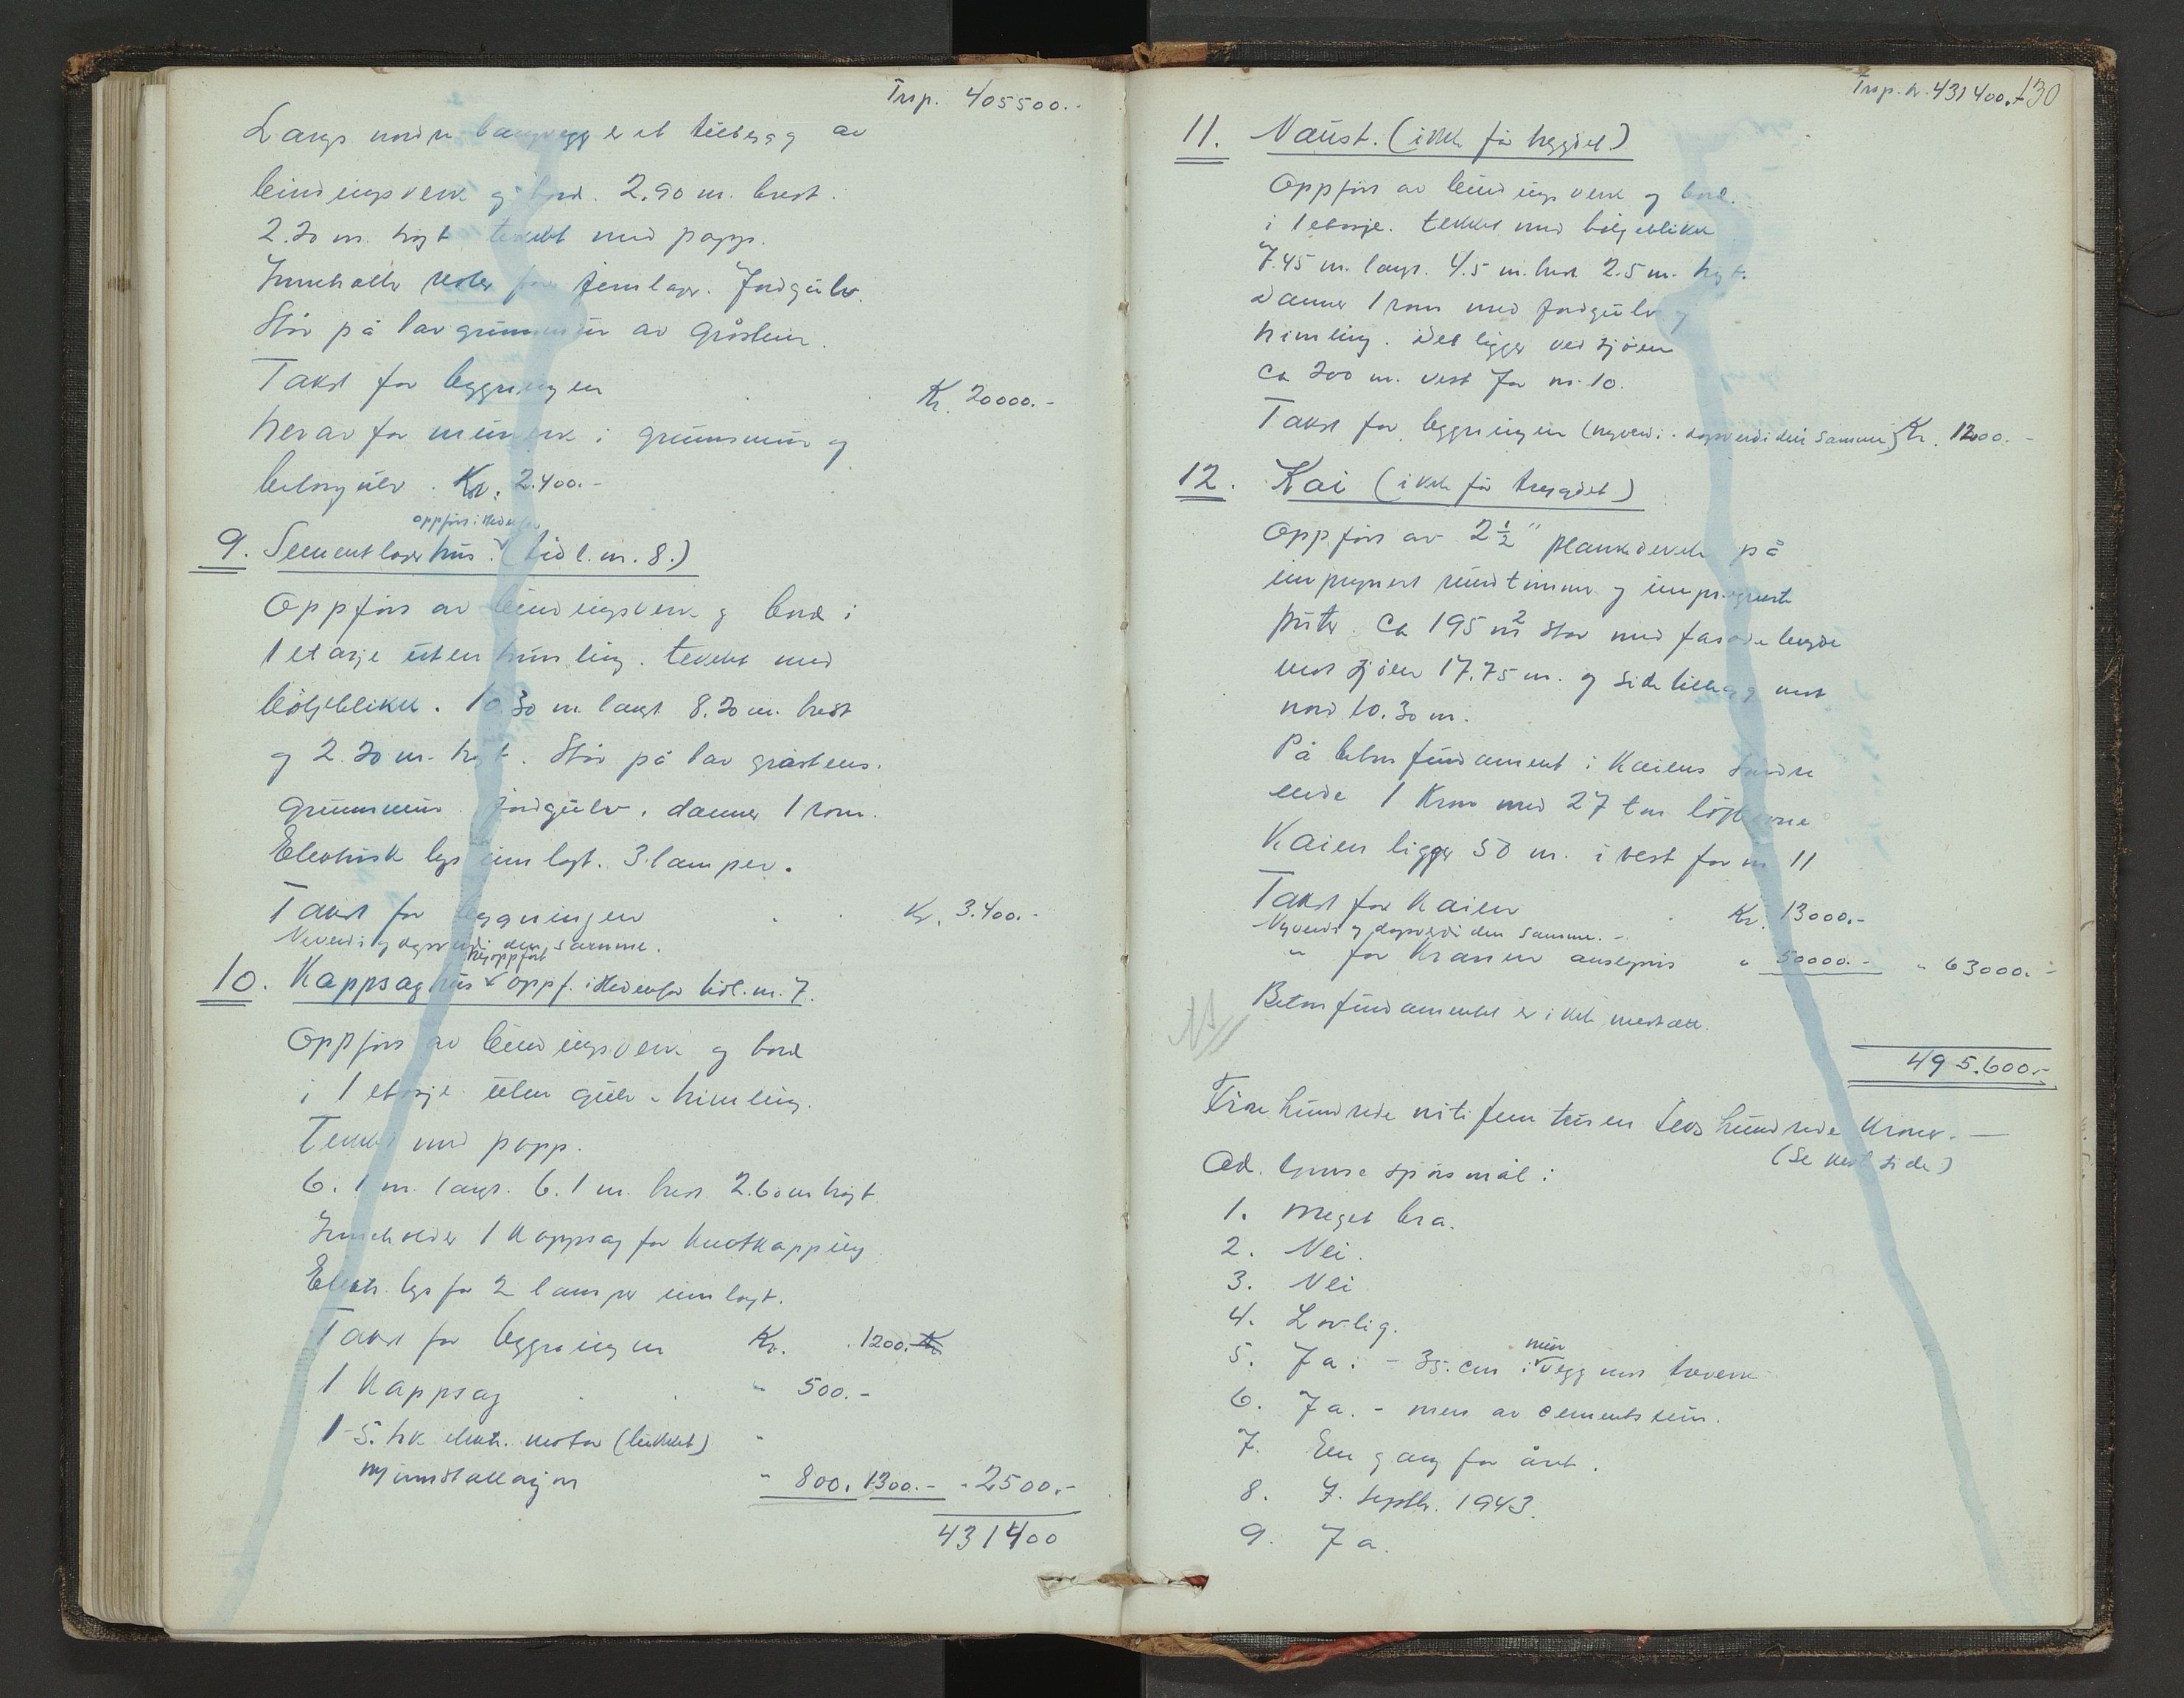 Trsp. 405500.-
Langs nordre langvegg er et tilbygg av
bindingsverk og bord. 2.90 m. bredt.
2.20 m. høyt tekket med papp.
Inneholder reoler for jernlager. Jordgulv.
Står på lav grunnmur av gråstein.
Takst for bygningen Kr. 20000.-
herav for murverk i grunnmur og
betongulv. Kr. 2.400.-
oppført i
9. Sementlagerhus. (tidl. nr. 8.)
Oppført av bindingsverk og bord i
1 etasje uten himling. tekket med
bølgeblikk. 10.30 m. langt 8.20 m. bredt
og 2.20 m. høyt. Står på lav gråstens.
grunnmur. Jordgulv. danner 1 rom.
Elektrisk lys innlagt. 3 lamper.
Takst for bygningen Kr. 3.400.-
Nyverdi og dagsverdi den samme.
nyoppført
10. Kappsaghus oppf. i tidl. nr. 7.
Oppført av bindingsverk og bord
i 1 etasje uten gulv - himling.
Tekket med papp.
6.1 m. langt. 6.1 m. bredt. 2.60 m høyt
Inneholder 1 kappsag for
Elektr. lys for 2 lamper innlagt.
Takst for bygningen Kr. 1200.- Kr
1 Kappsag " 500.-
1-5. hk elektr. motor (lukket) "
og innstallasjon " 800. 1300.- - 2500.-
431400
Trsp. kr. 431400.- 130
11. Naust. (ikke før trygdet.)
Oppført av bindingsverk og bord.
i 1 etasje. tekket med bølgeblikk
7.45 m. langt. 4.5 m. bredt 2.5 m. høyt.
danner 1 rom med jordgulv og
himling. Det ligger ved sjøen
ca 200 m. vest for nr. 10.
Takst for bygningen (nyverdi - dagsverdi den samme) Kr. 1200.-
12. Kai (ikke før trygdet)
Oppført av 2 1/2" plankedekke på
impregnert rundtimmer og impregnerte
ca 195 m2 stor med fasadelengde
mot sjøen 17.75 m. og sidetillegg mot
nord 10.30 m.
På betonfundament i Kaiens søndre
ende 1 Kran med 27 ton løfteevne
Kaien ligger 50 m. i vest for nr 11
Takst for Kaien Kr. 13000.-
Nyverdi og dagsverdi den samme.-
" for Kranen " 50000.- " 63000.-
Betonfundamentet er ikke medtatt.
495.600.-
Fire hundrede nitifem tusen seks hundrede Kroner.-
(Se neste side)
Ad. spørsmål:
1. Meget bra.
2. Nei.
3. Nei
4. Lovlig.
mur
5. Ja. - 35. cm i vegg mot treverk
6. Ja. - men av cementstein.
7. En gang for året.
8. 7. septbr. 1943.
9. Ja.